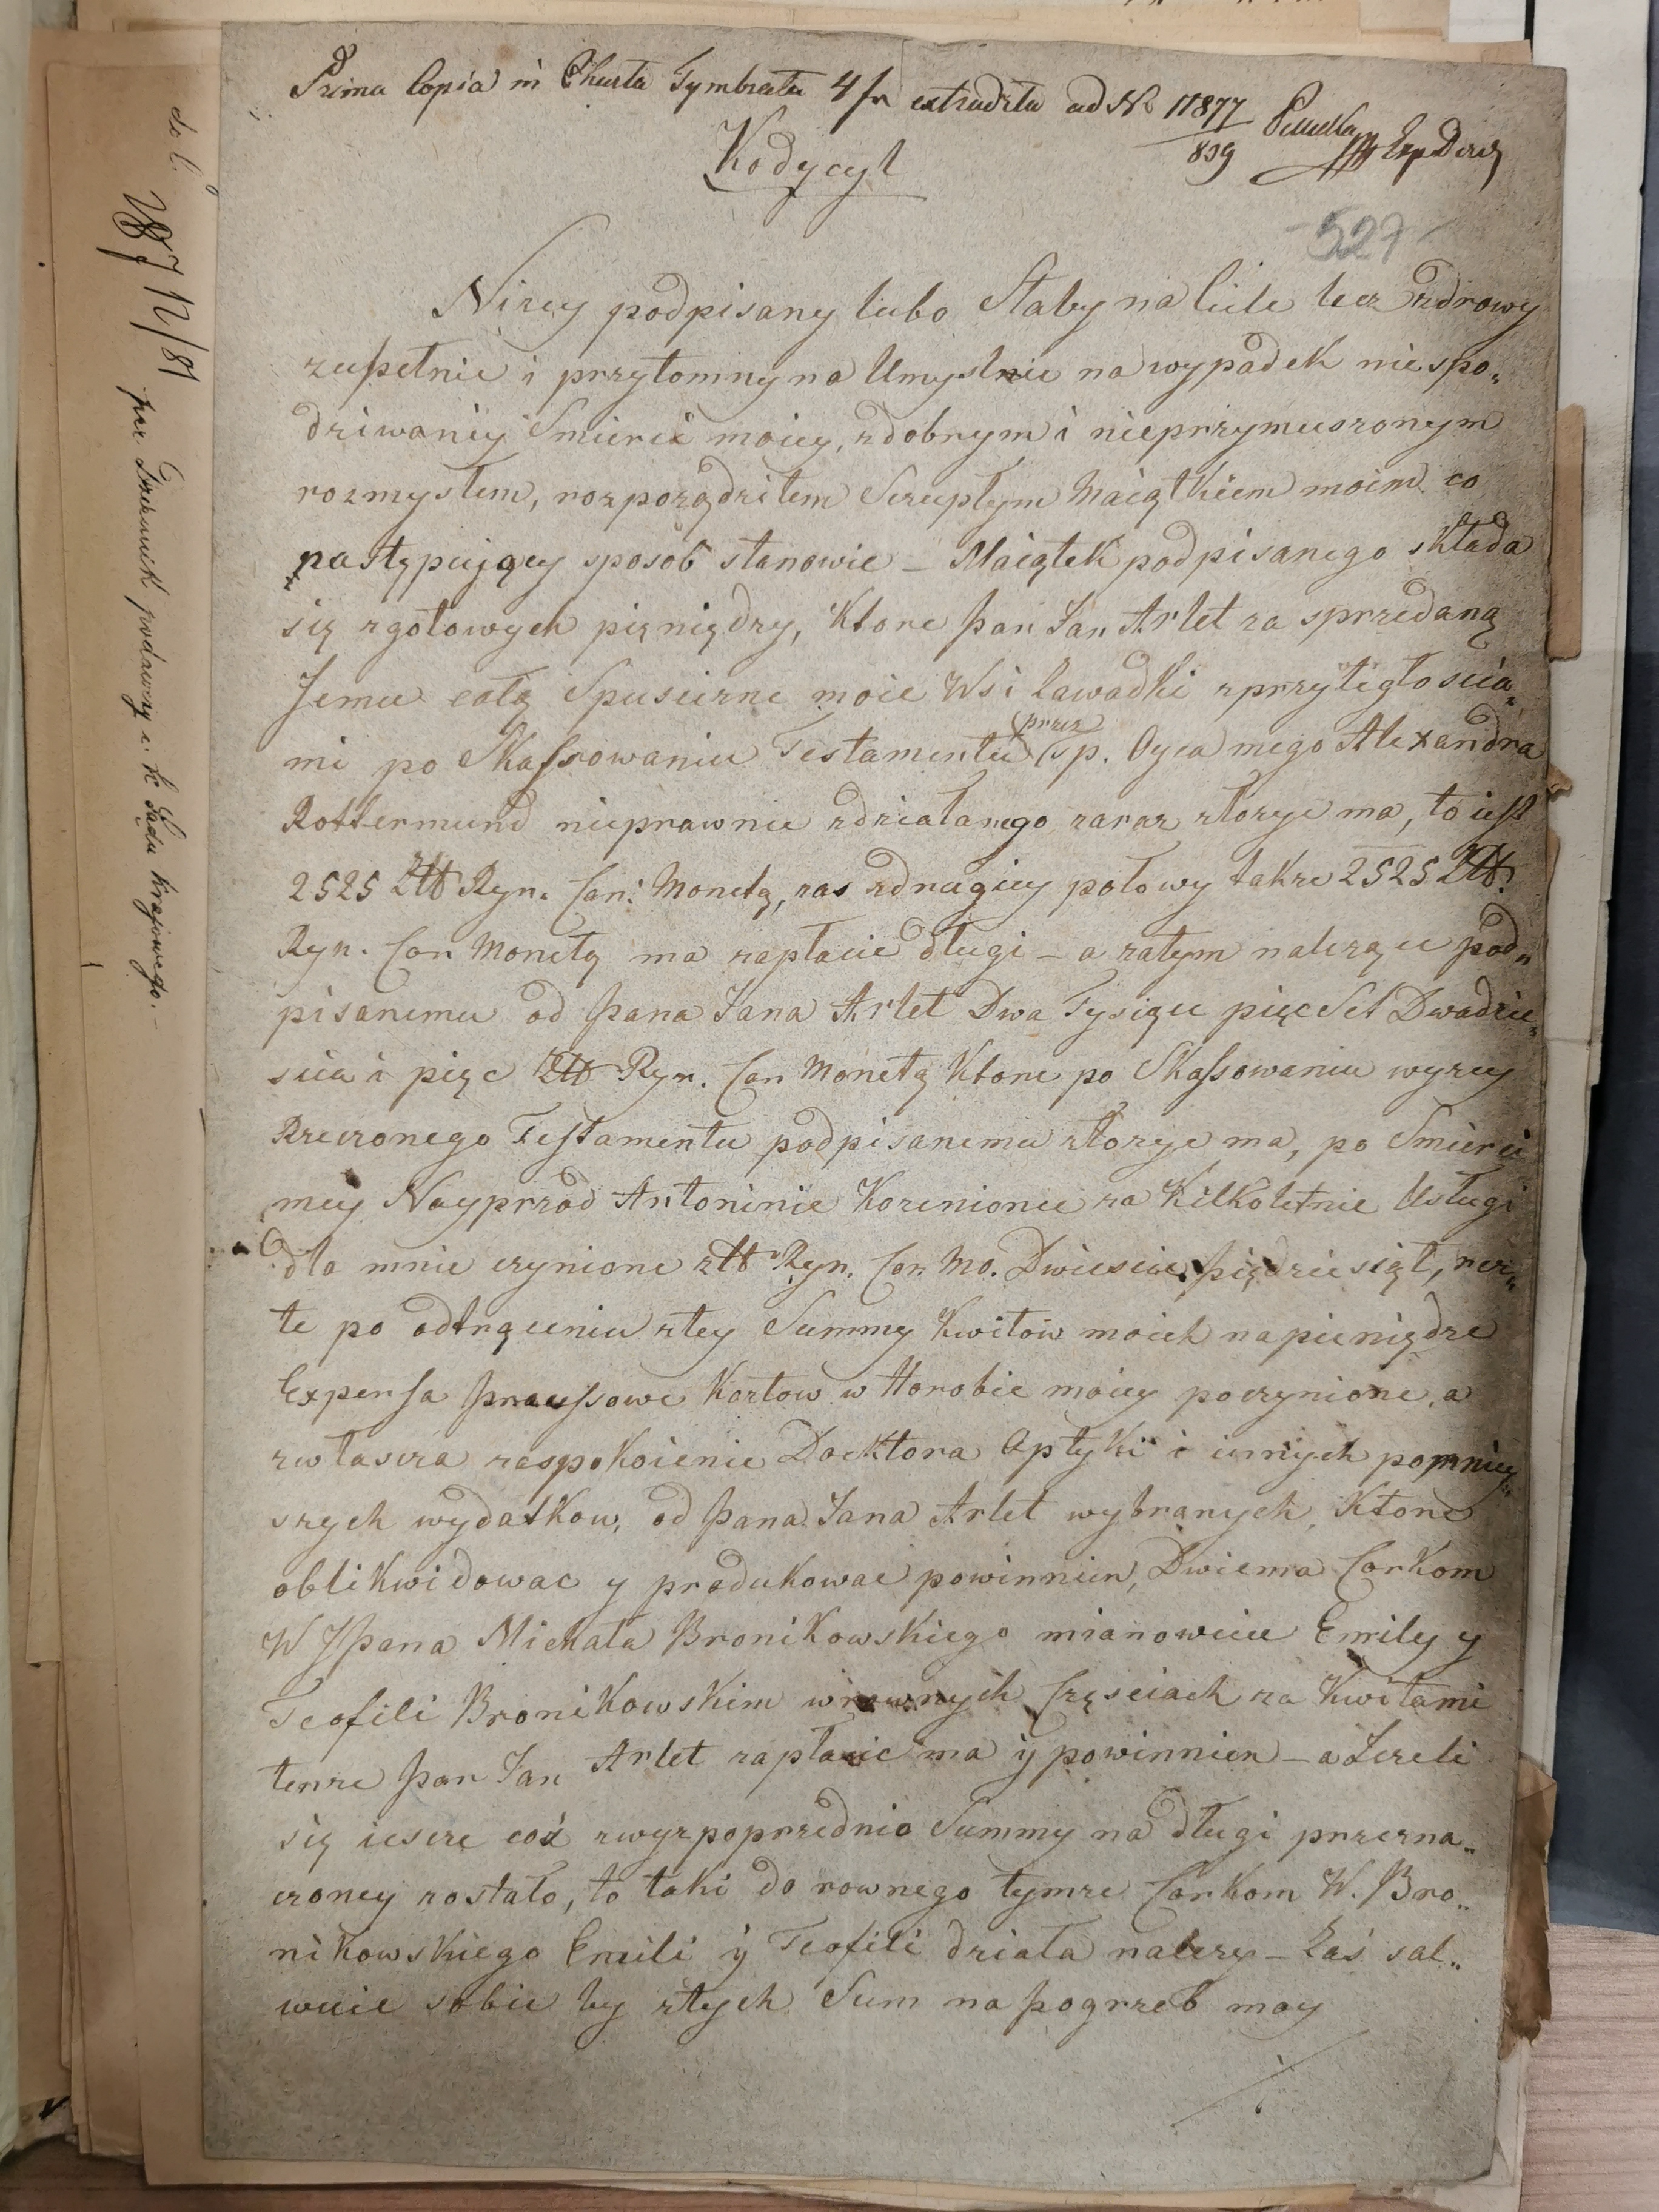 Prima Copia in Charta Tymbrata 4 fr extradita ad No 11877/839
Kodycyl
527
Nizey podpisany lubo Słaby na Ciele lecz zdrowy
zupełnie i przytomny na Umyslnie na wypadek niespo„
dziwaniey Smierci moiey, zdobrym i nieprzymuszonym
rozmysłem, rozporządziłem Szczupłym Maiątkiem moim co
następujący sposób stanowie – Maiątek podpisanego składa
się zgotowych pięniędzy, Ktore Pan Jan Arlet za sprzedaną
Jemu całą Spusciznę moie Wsi Zawadki zprzyległoscia„
mi po Skassowaniu Testamentu (przez) sp. Oyca mego Alexandra
Rottermund nieprawnie zdziałanego zaraz złozyc ma, to iest
2525 Ztt Ryn. Con: Monetą, zas zdrugiey połowy takze 2525 Ztt.
Ryn. Con Monetą ma zapłacic długi – a zatym nalezące pod„
pisanemu od Pana Jana Arlet Dwa Tysiące pięc Set Dwadzie„
scia i pięc Ztt Ryn. Con Monetą Ktore po Skassowaniu wyzey
Rzeczonego Testamentu podpisanemu złozyc ma, po Smierci
mey Nayprzod Antoninie Kozenionce za Kilkoletnie Usługi
dla mnie czynione ztt Ryn. Con. Mo. Dwiescie piędziesiąt, resz„
te po odtrąceniu ztey Summy Kwitow moich na pieniądze
Expensa Koztow w Horobie moiey poczynione, a
zwłascza zaspokoienie Docktora Aptyki i innych pomniey
szych wydatkow, od Pana Jana Arlet wybranych, Ktore
oblikwidowac y produkowac powinnien, Dwiema Corkom
W JPana Michała Bronikowskiego mianowicie Emily y
Teofili Bronikowskim wrownych Częsciach za Kwitami
tenze Pan Jan Arlet zapłacic ma y powinnien – a Jezeli
się iescze coś zwyzpoprzednio Summy na długi przezna„
czoney zostało, to taki do rownego tymze Corkom W. Bro„
nikowskiego Emili y Teofili działa nalezy – Zaś sal„
wuie sobie by ztych Sum na pogrzeb moy
per Dziennik podawczy c. k Sądu Krajowego. –